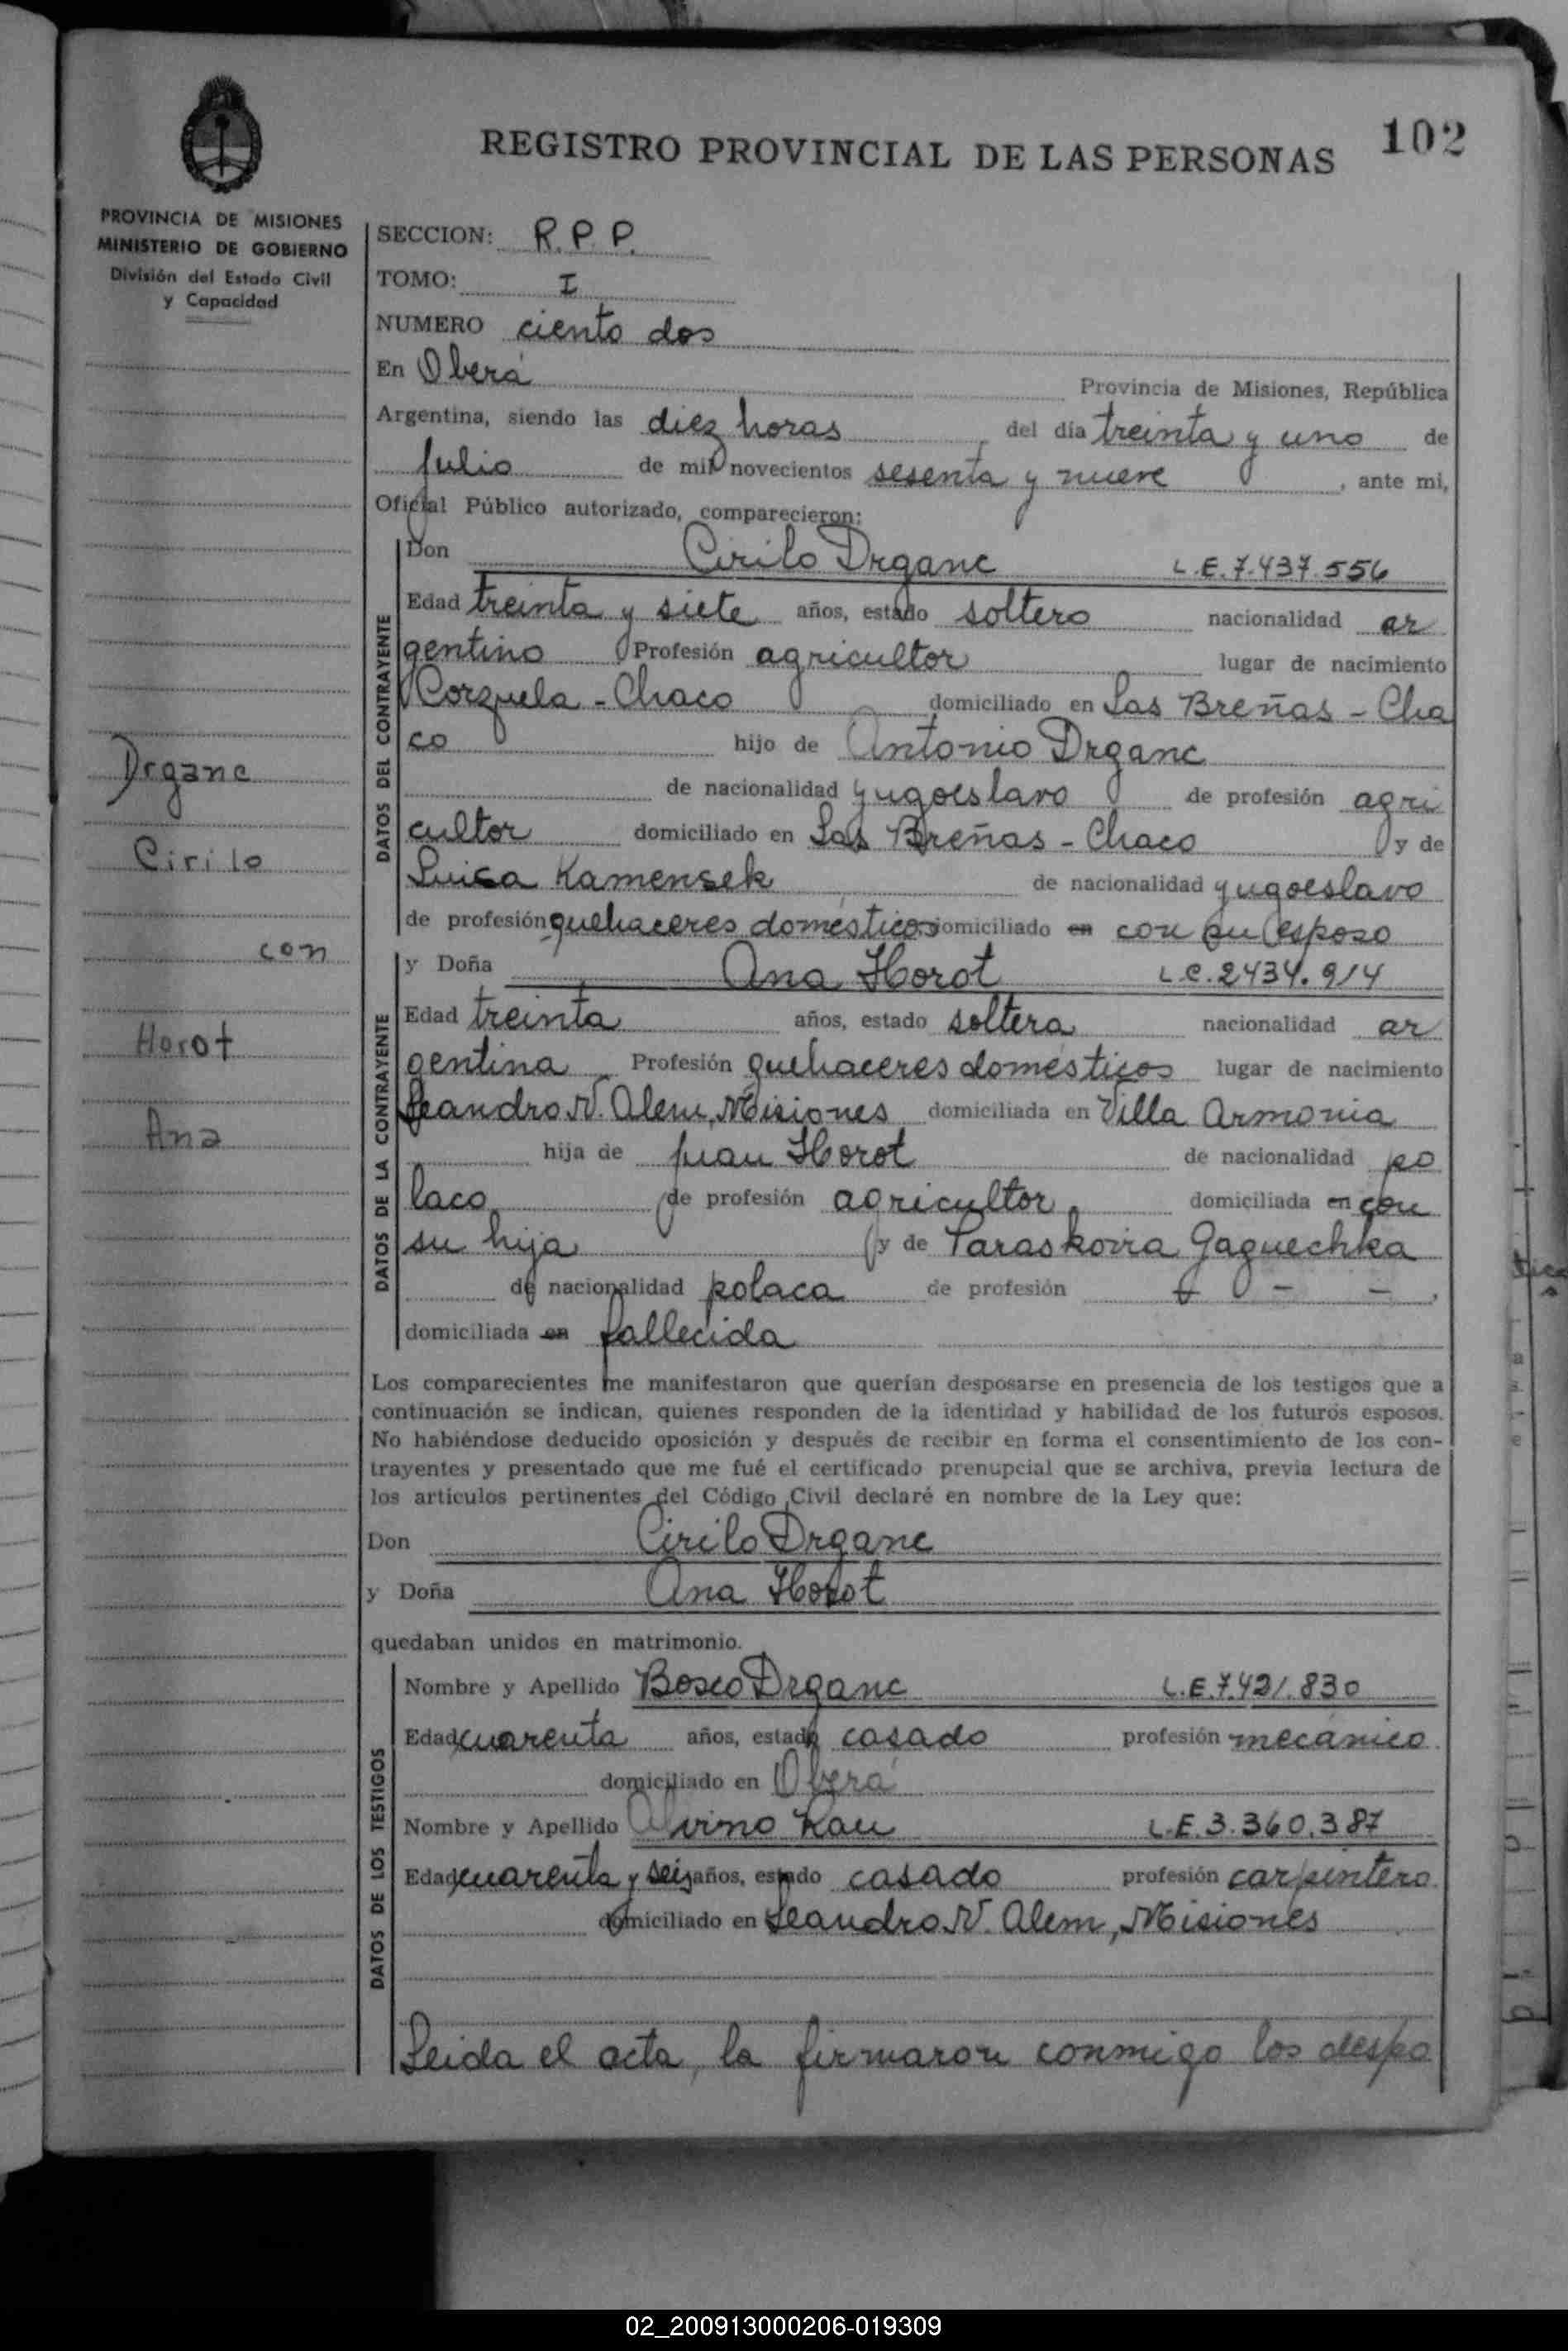 102
REGISTRO PROVINCIAL DE LAS PERSONAS
PROVINCIA DE MISIONES
MINISTERIO DE GOBIERNO
División del Estado Civil
y Capacidad
Drganc
Cirilo
con
Horot
Ana
SECCION: R. P. P.
TOMO: I
NUMERO ciento dos
En Oberá Provincia de Misiones, República
Argentina, siendo las diez horas, del día treinta y uno de
julio de mil novecientos sesenta y nueve, ante mi,
Oficial Público autorizado, comparecieron:
DATOS DEL CONTRAYENTE
Don Cirilo Drganc L.E. 7.437.556
Edad treinta y siete años, estado soltero nacionalidad ar
gentino Profesión agricultor lugar de nacimiento
Corzuela - Chaco domiciliado en Las Breñas - Cha
co hijo de Antonio Drganc
de nacionalidad yugoeslavo de profesión agri
cultor domiciliado en Las Breñas - Chaco y de
Luisa Kamensek de nacionalidad yugoeslavo
de profesión quehaceres domésticos domiciliado en con su esposo
DATOS DE LA CONTRAYENTE
y Doña Ana Horot L.C. 2434.914
Edad treinta años, estado soltera nacionalidad ar
gentina Profesión quehaceres domésticos lugar de nacimiento
Leandro N. Alem, Misiones domiciliada en Villa Armonia
hija de Juan Horot de nacionalidad po
laco de profesión agricultor domiciliada en con
su hija y de Paraskovia Gaguechka
de nacionalidad polaca de profesión - -,
domiciliada en fallecida
Los comparecientes me manifestaron que querían desposarse en presencia de los testigos que a
continuación se indican, quienes responden de la identidad y habilidad de los futuros esposos.
No habiéndose deducido oposición y después de recibir en forma el consentimiento de los con-
trayentes y presentado que me fué el certificado prenupcial que se archiva, previa lectura de
los artículos pertinentes del Código Civil declaré en nombre de la Ley que:
Don Cirilo Drganc
y Doña Ana Horot
quedaban unidos en matrimonio.
DATOS DE LOS TESTIGOS
Nombre y Apellido Bosco Drganc L.E. 7.421.830
Edad cuarenta años, estado casado profesión mecánico
domiciliado en Oberá
Nombre y Apellido Alvino Rau L.E. 3.360.387
Edad cuarenta y seis años, estado casado profesión carpintero
domiciliado en Leandro N. Alem, Misiones
Leida el acta, la firmaron conmigo los despo
02_200913000206-019309